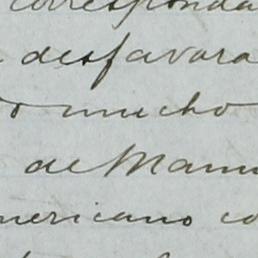 corresponda
desfavora
mucho
de Manu
mericano co